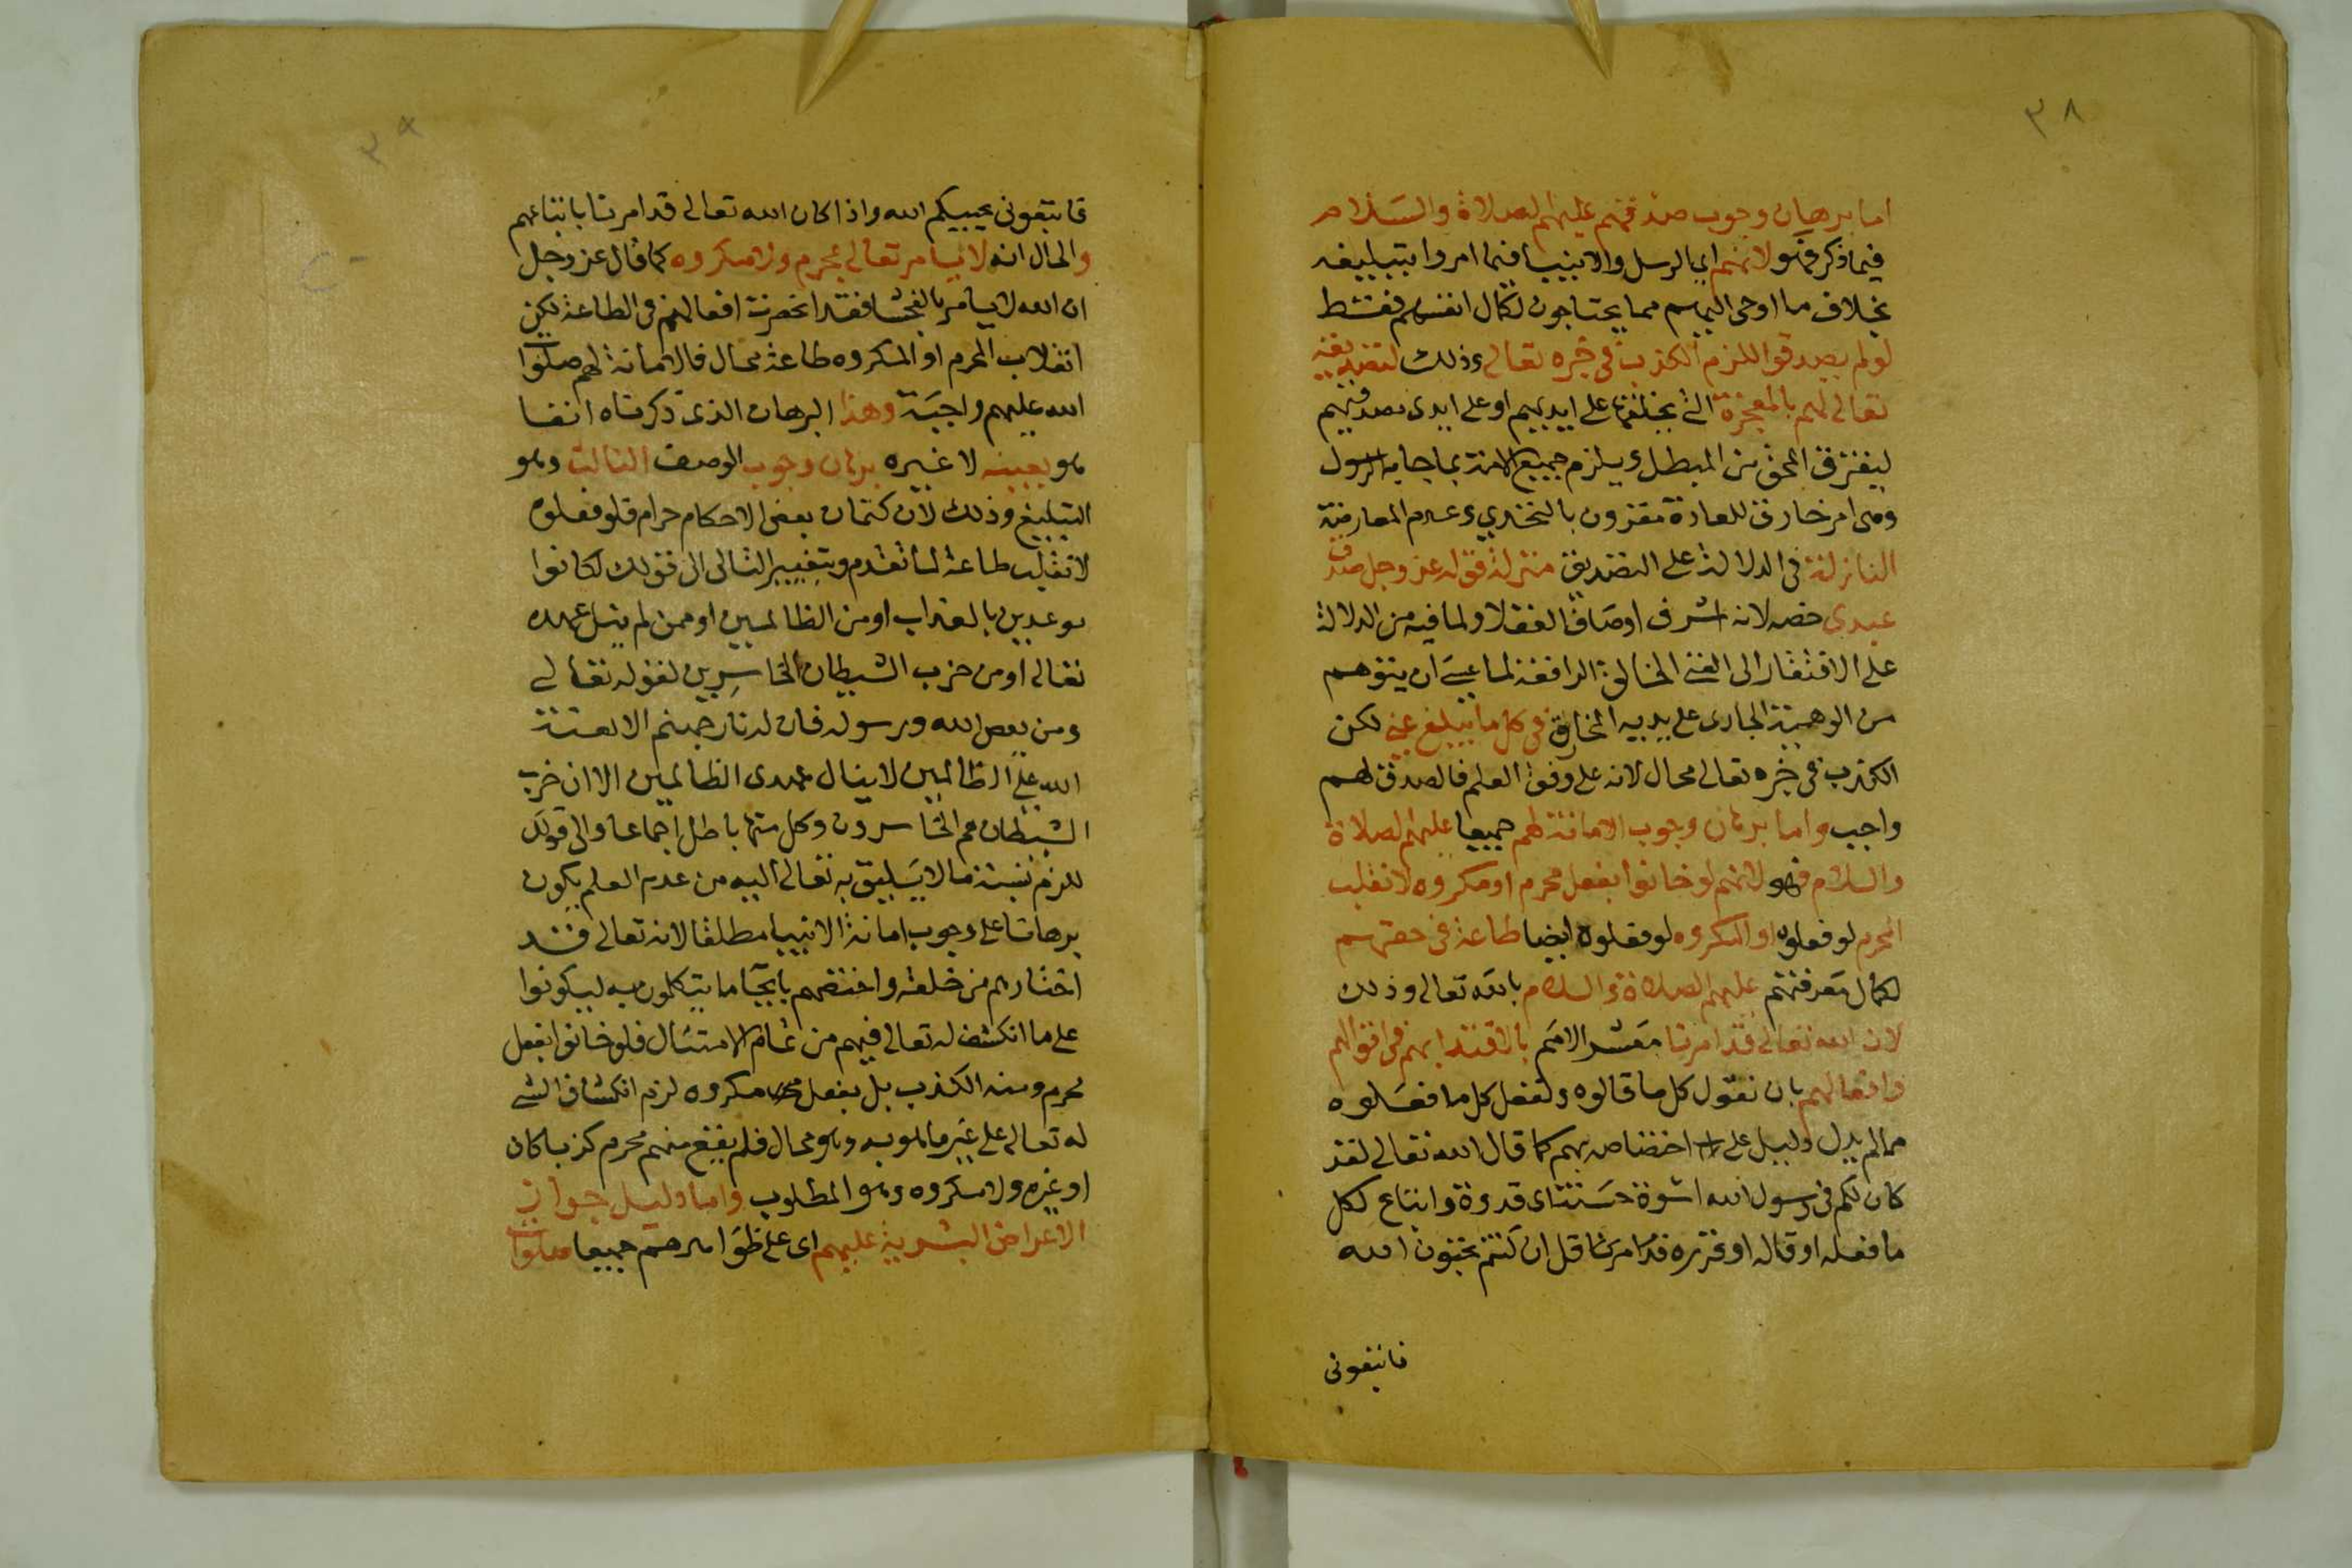 ٣٨
اما برهان وجوب صدقهم عليهم الصلاة والسلام
فيما ذكر فهو لانهم اي الرسل والانبيا فيما امروا بتبليغه
بخلاف ما اوحى اليهم مما يحتاجون لكمال انفسهم فقط
لو لم يصدقوا للزم الكذب في خبره تعالى وذلك لتصديقه
تعالى لهم بالمعجزة التي يخلقها على ايديهم او على ايدى مصدقيهم
ليفترق المحق من المبطل ويلزم جميع الامة بما جا به الرسول
وهى امر خارق للعادة مقرون بالتحدي وعدم المعارضة
النازلة في الدلالة على التصديق منزلة قوله عز وجل صدق
عبدى خصه لانه اشرف اوصاف العقلا ولما فيه من الدلالة
على الافتقار الى الغنى الخالق الدافعة لما عسى ان يتوهم
من الوهية الجارى على يديه الخارق في كل ما يبلغ عني لكن
الكذب في خبره تعالى محال لانه على وفق العلم فالصدق لهم
واجب واما برهان وجوب الامانة لهم جميعا عليهم الصلاة
والسلام فهو لانهم لو خانوا بفعل محرم او مكروه لانقلب
المحرم لو فعلوه او المكروه لو فعلوه ايضا طاعة في حقهم
لكمال معرفتهم عليهم الصلاة والسلام بالله تعالى وذلك
لان الله تعالى قد امرنا معشر الامم بالاقتدا بهم في اقوالهم
وافعالهم بان نقول كل ما قالوه ونفعل كل ما فعلوه
مما لم يدل دليل على اختصاصهم به كما قال الله تعالى لقد
كان لكم في رسول الله اسوة حسنة اى قدوة واتباع لكل
ما فعله او قاله او قرره قد امرنا قل ان كنتم تحبون الله
فاتبعونى
فاتبعونى يحببكم الله واذا كان الله تعالى قد امرنا باتباعهم
والحال انه لا يامر تعالى بمحرم ولا مكروه كما قال عز وجل
ان الله لا يامر بالفحشا فقد انحصرت افعالهم في الطاعة لكن
انقلاب المحرم او المكروه طاعة محال فالامانة لهم صلوا
الله عليهم واجبة وهذا البرهان الذى ذكرناه انفا
هو بعينه لا غيره برهان وجوب الوصف الثالث وهو
التبليغ وذلك لان كتمان بعض الاحكام حرام فلو فعلوه
لانقلب طاعة لما تقدم وبتغيير التالى الى قولك لكانوا
موعدين بالعذاب او من الظالمين او ممن لم ينل عهده
تعالى او من حزب الشيطان الخاسرين لقوله تعالى
ومن يعص الله ورسوله فان له نار جهنم الا لعنة
الله على الظالمين لا ينال عهدى الظالمين الا ان حزب
الشيطان هم الخاسرون وكل منها باطل اجماعا والى قولك
للزم نسبة ما لا يليق به تعالى اليه من عدم العلم يكون
برهانا على وجوب امانة الانبيا مطلقا لانه تعالى قد
اختارهم من خلقه واختصهم بايحا ما يتكلمون به ليكونوا
على ما انكشف له تعالى فيهم من تمام الامتثال فلو خانوا بفعل
محرم ومنه الكذب بل بفعل مكروه لزم انكشاف الشي
له تعالى على غير ما هو به وهو محال فلم يقع منهم محرم كذبا كان
او غيره ولا مكروه وهو المطلوب واما دليل جواز
الاعراض البشرية عليهم اى على ظواهرهم جميعا صلوا